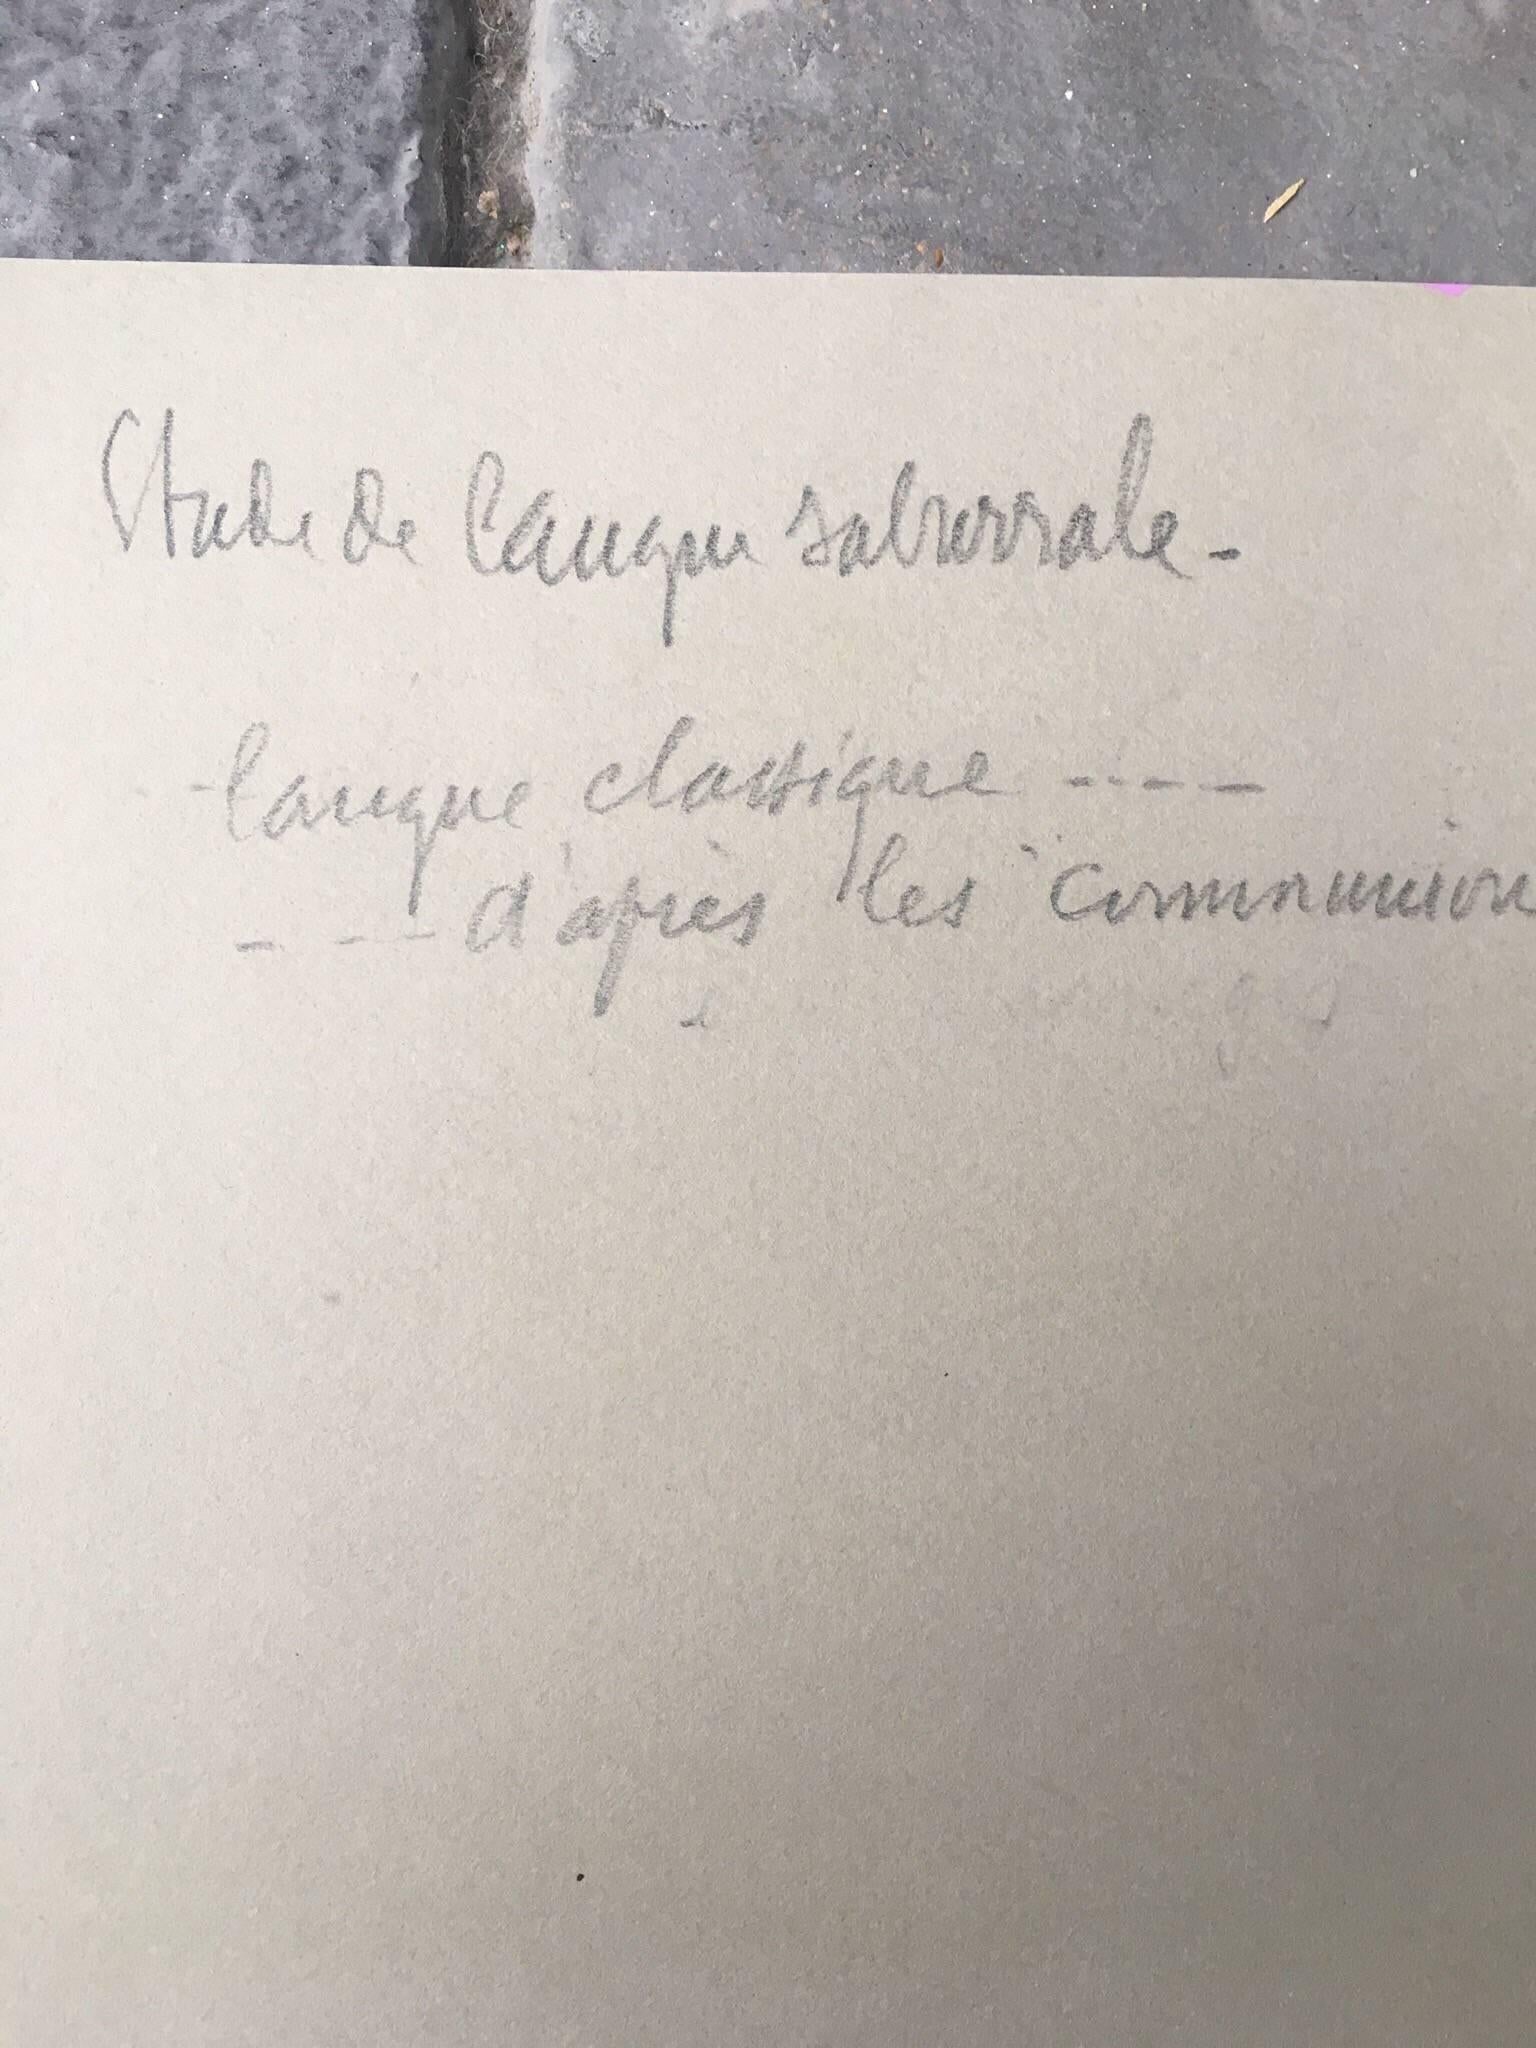 Etude de langue saburrale -
- langue classique ----
- --- d'après les communion